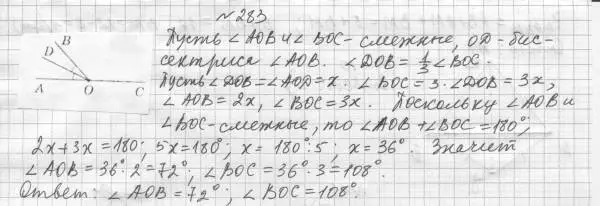 №283
Пусть ∠AOB и ∠BOC - смежные, OD - бис-
сектриса ∠AOB. ∠DOB = 1/3 ∠BOC.
Пусть ∠DOB = ∠AOD = x. ∠BOC = 3·∠DOB = 3x,
∠AOB = 2x, ∠BOC = 3x. Поскольку ∠AOB и
∠BOC - смежные, то ∠AOB + ∠BOC = 180°;
2x + 3x = 180; 5x = 180°; x = 180°:5; x = 36°. Значит
∠AOB = 36°·2 = 72°; ∠BOC = 36°·3 = 108°.
Ответ: ∠AOB = 72°; ∠BOC = 108°.
B
D
A O C